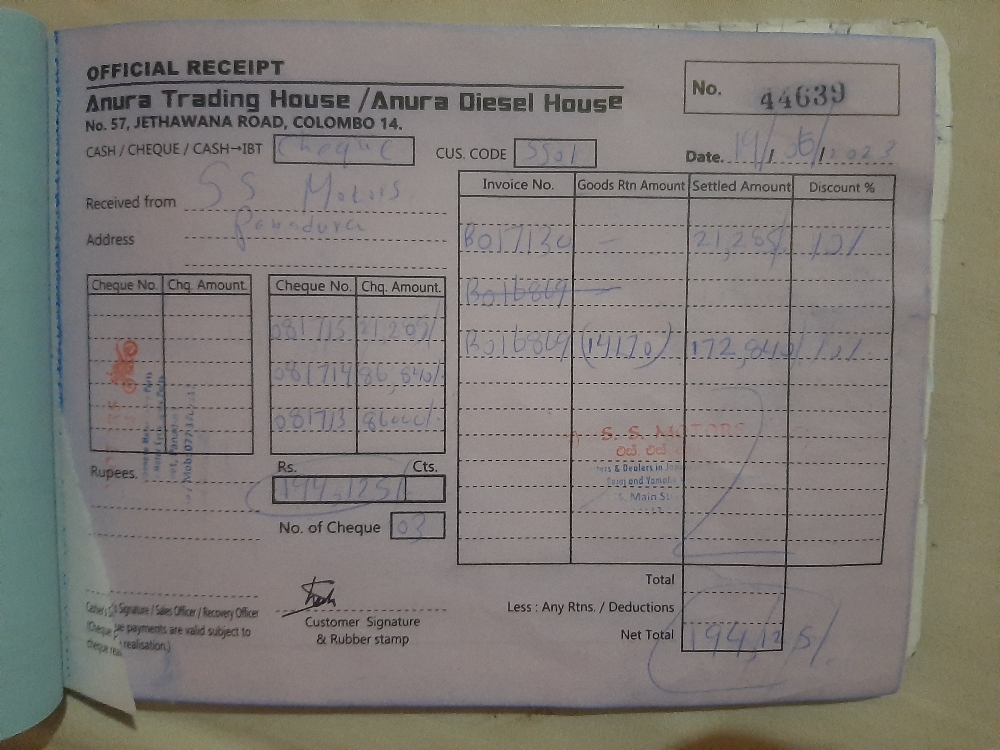 OFFICIAL RECEIPT
Anura Trading House / Anura Diesel House
No. 57, JETHAWANA ROAD, COLOMBO 14.
No. 44639
CASH / CHEQUE / CASH→IBT Cheque
CUS. CODE SS01
Date. 19/06/2023
Received from SS Motors
Address Panadura
Invoice No. Goods Rtn Amount Settled Amount Discount %
B017130 — 21,285/- 10%
B016869 —
B016869 (14170) 172,840/- 10%
Cheque No. Chq. Amount.
Cheque No. Chq. Amount.
081715 21,285/-
081714 86,840/-
081713 86000/-
S. S. MOTORS
& Dealers in
and Yamaha
Main St
Rupees.
Rs. Cts.
194,125/-
No. of Cheque 03
Total
Less : Any Rtns. / Deductions
Net Total 194,125/-
Signature / Sales Officer / Recovery Officer
payments are valid subject to
realisation.)
Customer Signature
& Rubber stamp